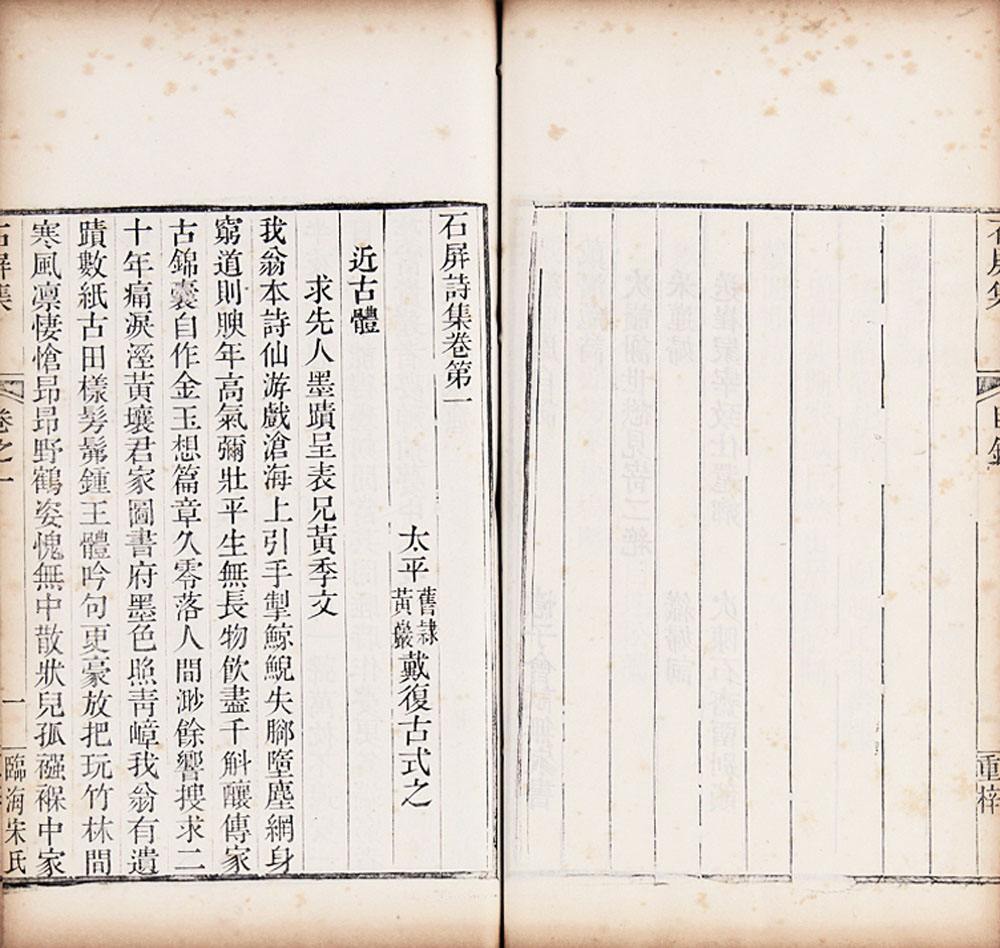 石屏集
目錄
重梓
石屏詩集卷第一
太平舊隸黃巖戴復古式之
近古體
求先人墨蹟呈表兄黃季文
我翁本詩仙游戲滄海上引手掣鯨鯢失腳墮塵網身
窮道則腴年高氣彌壯平生無長物飲盡千斛釀傳家
古錦囊自作金玉想篇章久零落人間渺餘響搜求二
十年痛淚溼黃壤君家圖書府墨色照靑嶂我翁有遺
蹟數紙古田樣髣髴鍾王體吟句更豪放把玩竹林間
寒風凛悽愴昂昂野鶴姿愧無中散狀兒孤襁褓中家
石屏集
卷之一
一
臨海宋氏